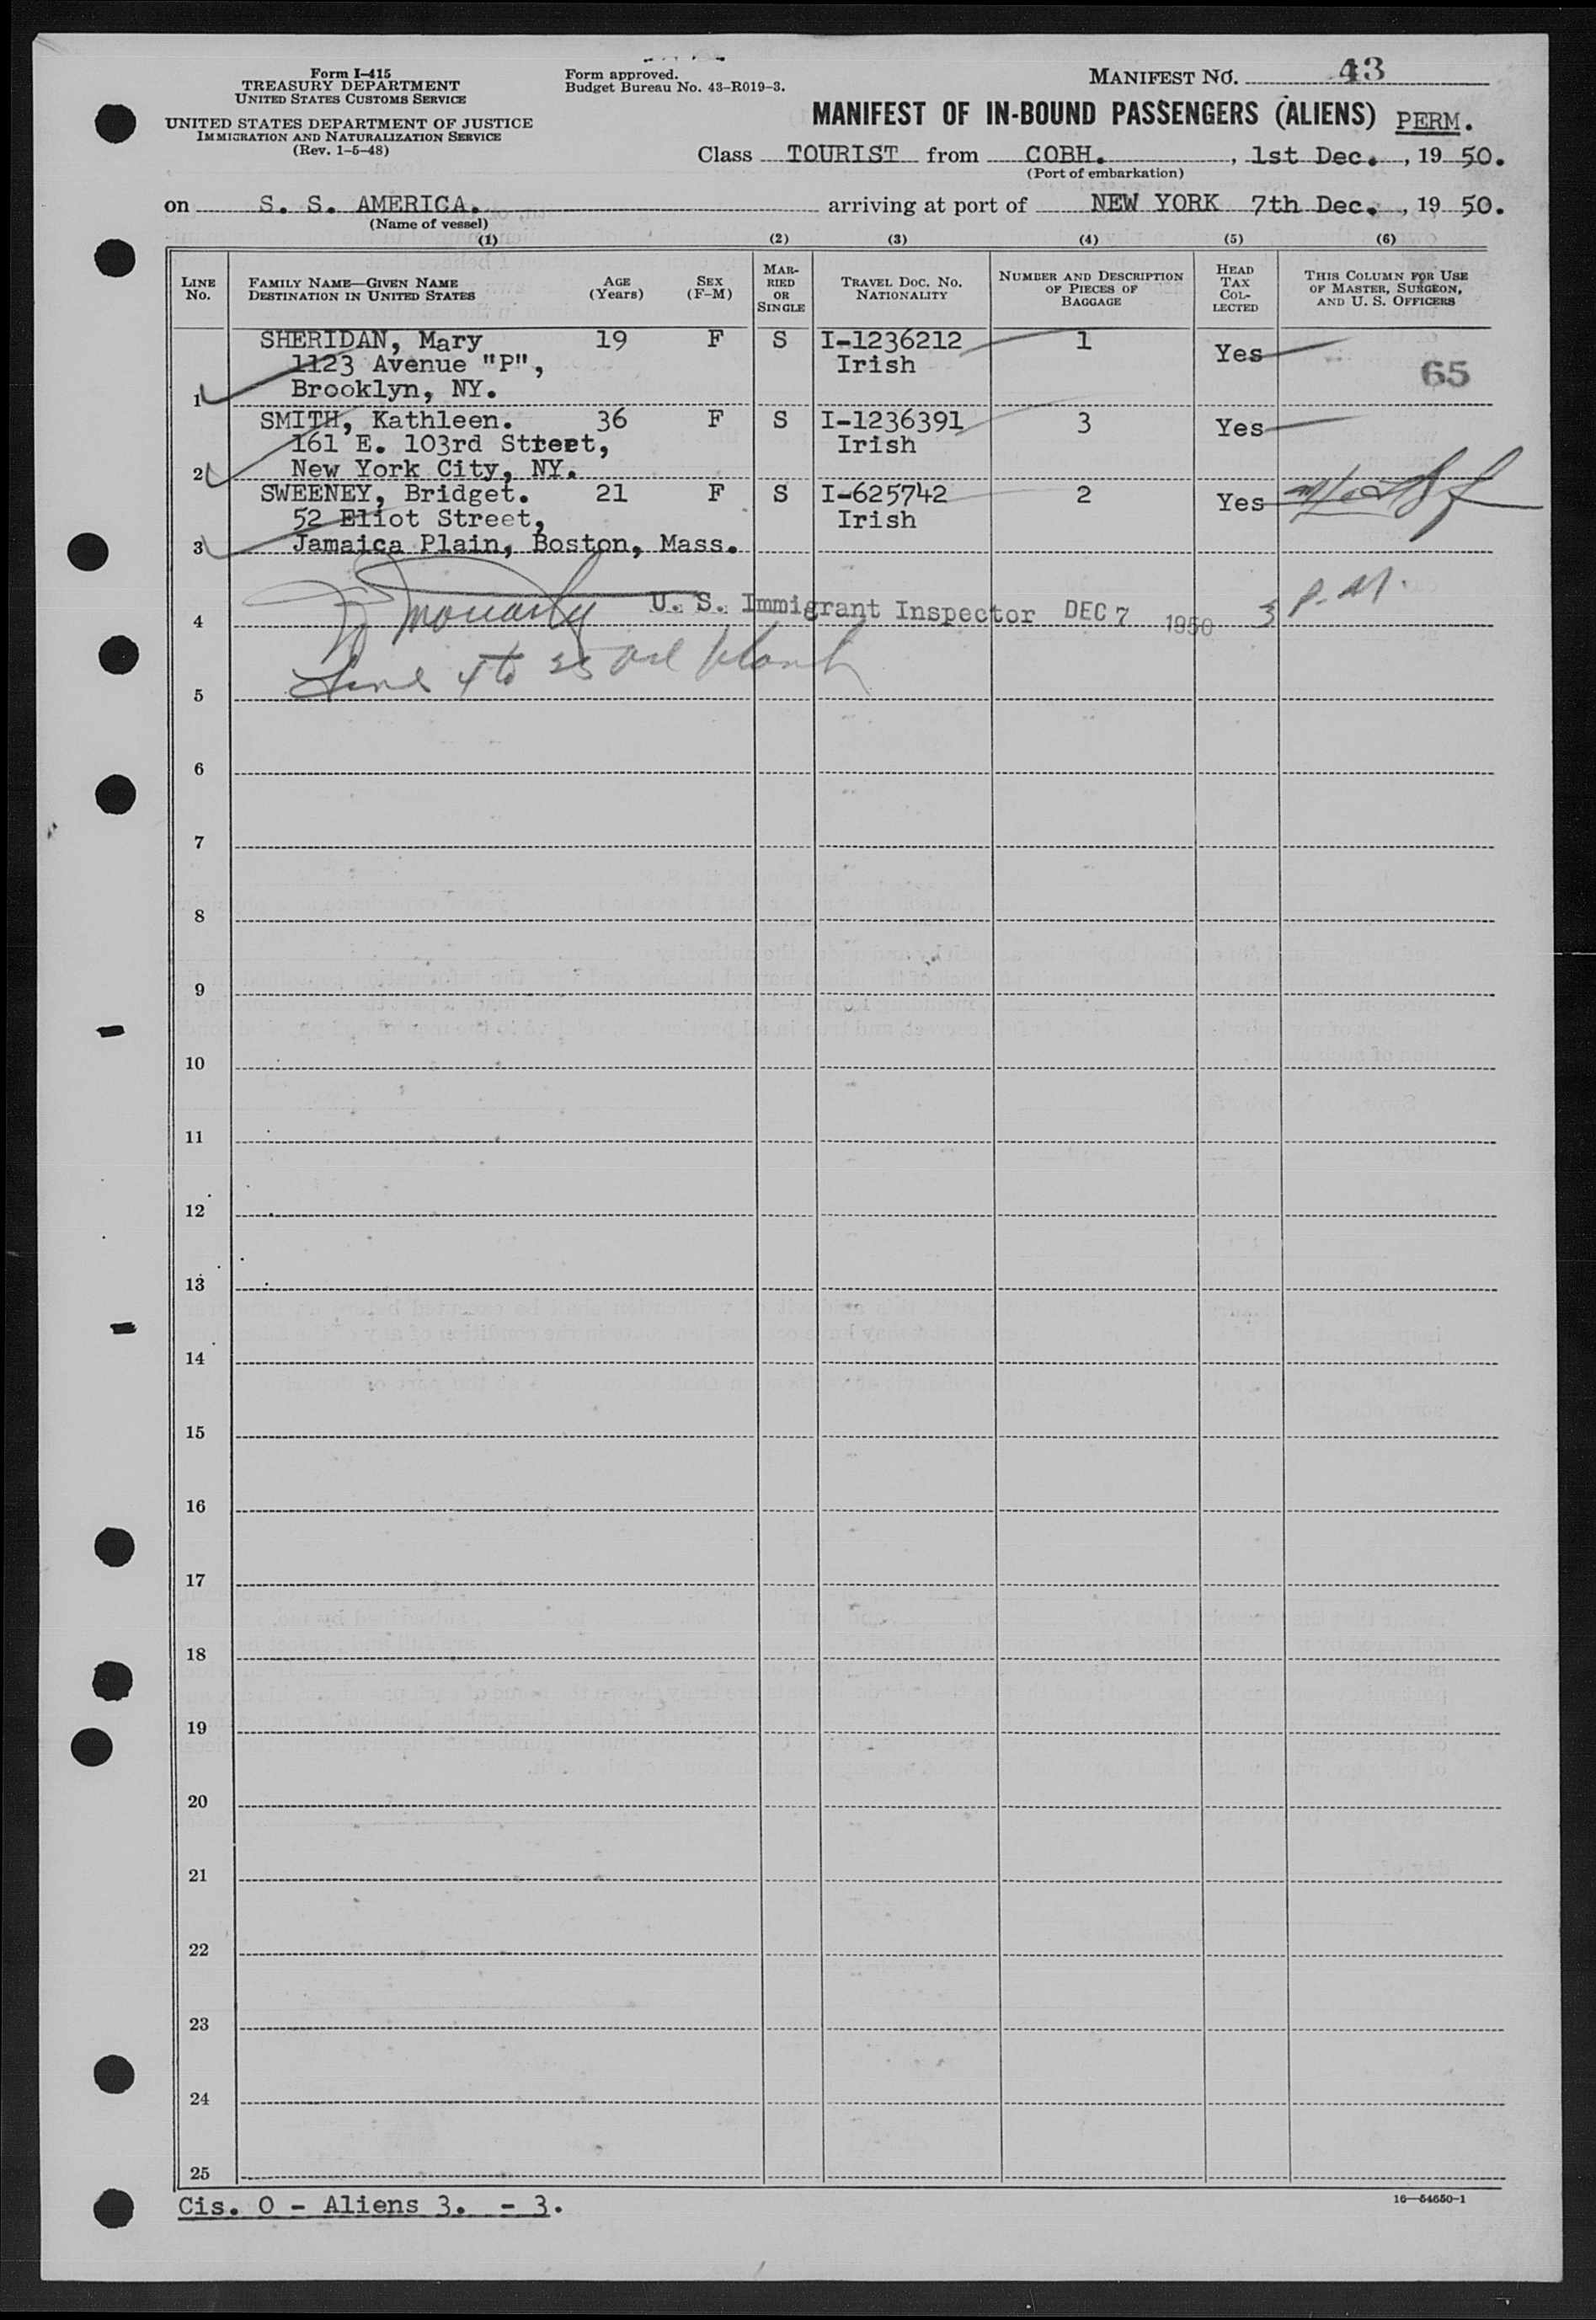 Form I-415
TREASURY DEPARTMENT
UNITED STATES CUSTOMS SERVICE
UNITED STATES DEPARTMENT OF JUSTICE
IMMIGRATION AND NATURALIZATION SERVICE
(Rev. 1-5-48)
Form approved.
Budget Bureau No. 43-R019-3.
MANIFEST NO. 43
MANIFEST OF IN-BOUND PASSENGERS (ALIENS) PERM.
Class TOURIST from COBH. , 1st Dec. , 19 50.
(Port of embarkation)
on S. S. AMERICA. arriving at port of NEW YORK 7th Dec. , 19 50.
(Name of vessel)
(1) (2) (3) (4) (5) (6)
LINE No.
FAMILY NAME—GIVEN NAME
DESTINATION IN UNITED STATES
AGE (Years)
SEX (F-M)
MARRIED OR SINGLE
TRAVEL DOC. NO.
NATIONALITY
NUMBER AND DESCRIPTION OF PIECES OF BAGGAGE
HEAD TAX COLLECTED
THIS COLUMN FOR USE OF MASTER, SURGEON, AND U. S. OFFICERS
SHERIDAN, Mary 19 F S I-1236212 1 Yes
1123 Avenue "P", Irish 65
1 Brooklyn, NY.
SMITH, Kathleen. 36 F S I-1236391 3 Yes
161 E. 103rd Street, Irish
2 New York City, NY.
SWEENEY, Bridget. 21 F S I-625742 2 Yes
52 Eliot Street, Irish
3 Jamaica Plain, Boston, Mass.
4 U. S. Immigrant Inspector DEC 7 1950 3 P.M.
Lines 4 to 25 are blank
5
6
7
8
9
10
11
12
13
14
15
16
17
18
19
20
21
22
23
24
25
Cis. 0 - Aliens 3. - 3.
16—54650-1